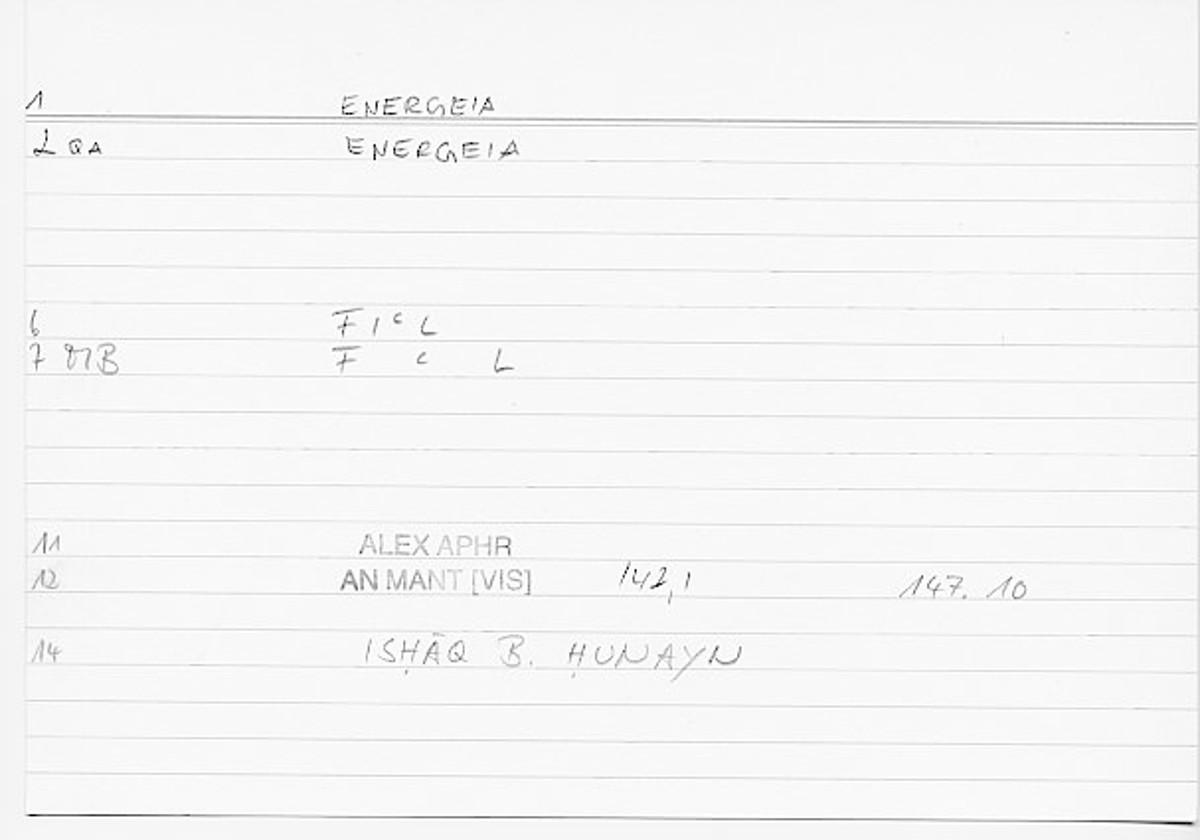 1 ENERGEIA
2 QA ENERGEIA
6 F I c L
7 MB F c L
11 ALEX APHR
12 AN MANT [VIS] 142,1 147.10
14 ISḤĀQ B. ḤUNAYN